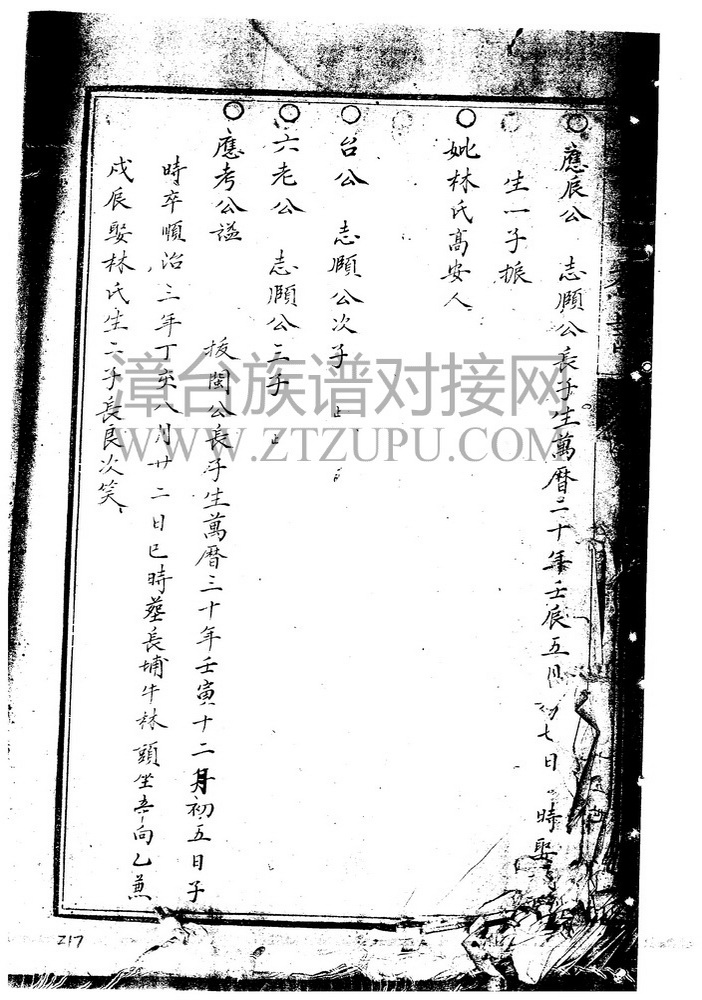 應辰公 志願公長子生萬曆二十年壬辰五月初七日 時娶
生一子振
妣林氏高安人
台公 志願公次子 止
六老公 志願公三子 止
應考公諡 振閩公長子生萬曆三十年壬寅十二月初五日子
時卒順治三年丁亥八月廿二日巳時葬長埔牛林頭坐辛向乙兼
戌辰娶林氏生二子長良次笑
漳台族谱对接网
WWW.ZTZUPU.COM
217